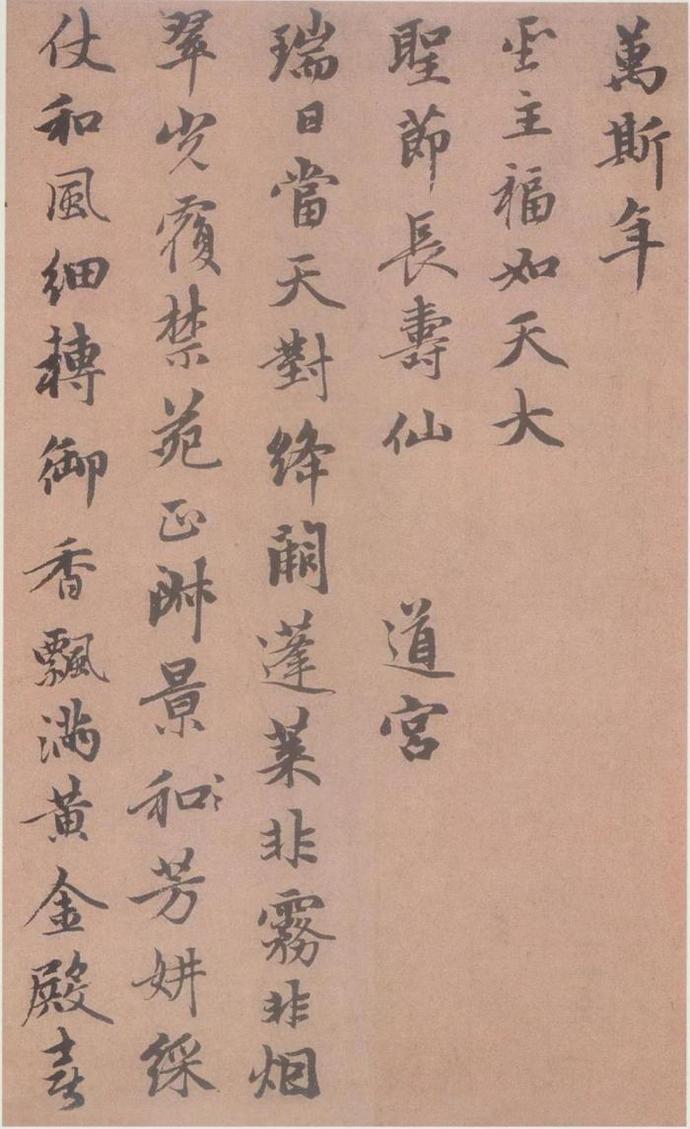 萬斯年
主福如天大
聖節長壽仙　道宮
瑞日當天對絳闕蓬萊非霧非烟
翠光覆禁苑正淑景和芳妍綵
仗和風細轉御香飄滿黃金殿喜